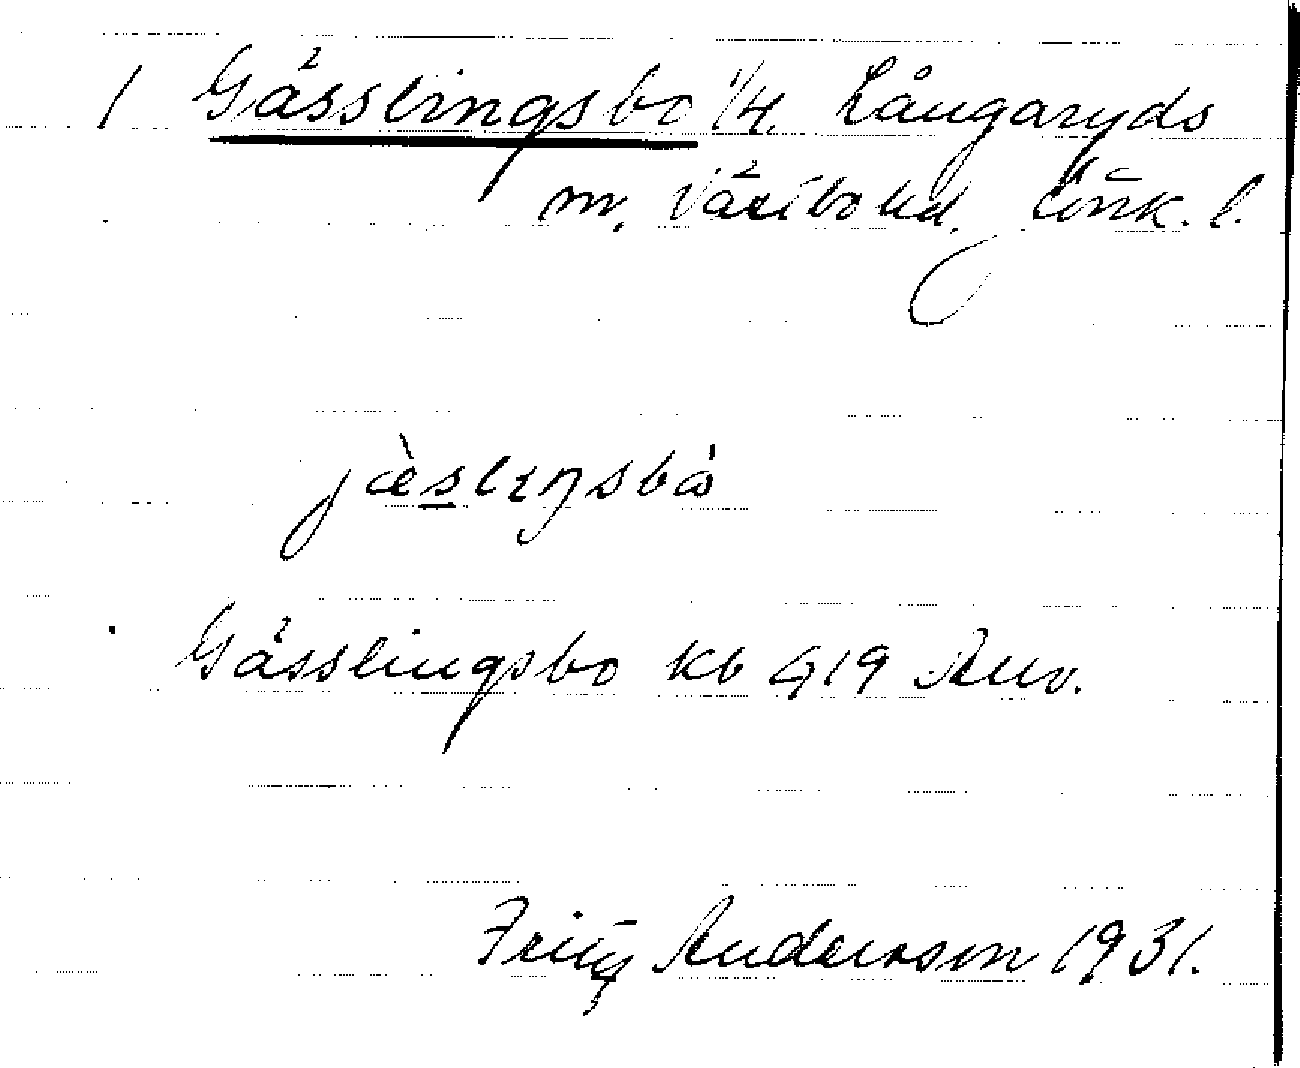 1 Gässlingsbo 1/4. Långaryds
m. Västbo hd. Jönk. l.
jæ̀slɪŋsbɷ̀
Gässlingsbo Kb G19 Anv.
Fritz Anderson 1931.